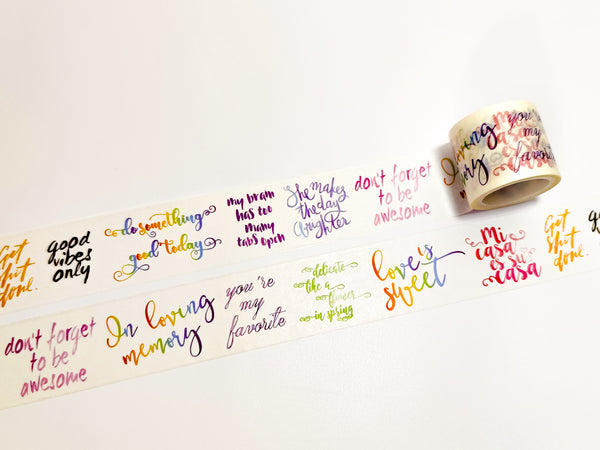 Get
shit
done.
good
vibes
only
do something
good today
my brain
has too
many
tabs open
She makes
the day
laughter
don't forget
to be
awesome
you're
my
favorite
don't forget
to be
awesome
In loving
memory
you're
my
favorite
delicate
like a
flower
in spring
love is
sweet
Mi
casa
es su
casa
Get
shit
done.